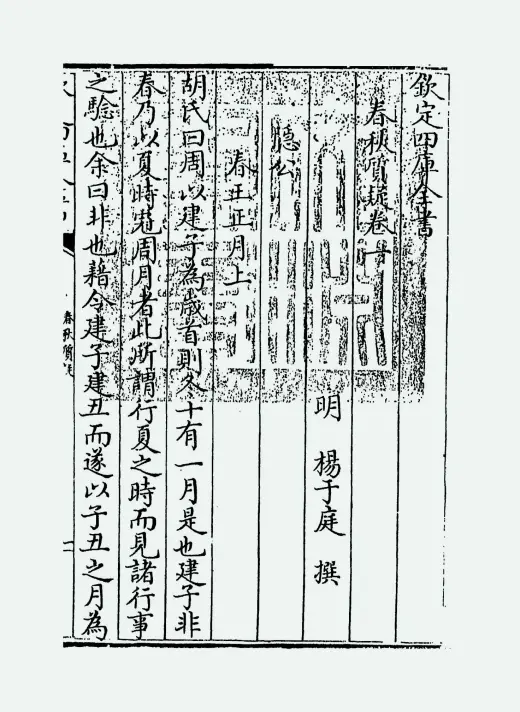 欽定四庫全書
春秋質疑卷一
明 楊于庭 撰
隱公
春王正月上
胡氏曰周以建子為歲首則冬十有一月是也建子非
春乃以夏時冠周月者此所謂行夏之時而見諸行事
之驗也余曰非也藉令建子建丑而遂以子丑之月為
春秋質疑
一